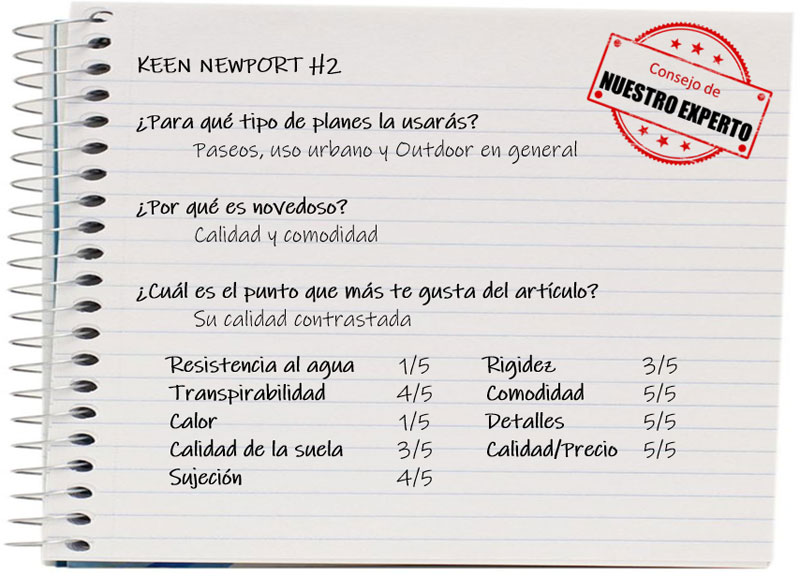 KEEN NEWPORT H2
Consejo de
NUESTRO EXPERTO
¿Para qué tipo de planes la usarás?
Paseos, uso urbano y Outdoor en general
¿Por qué es novedoso?
Calidad y comodidad
¿Cuál es el punto que más te gusta del artículo?
Su calidad contrastada
Resistencia al agua 1/5 Rigidez 3/5
Transpirabilidad 4/5 Comodidad 5/5
Calor 1/5 Detalles 5/5
Calidad de la suela 3/5 Calidad/Precio 5/5
Sujeción 4/5